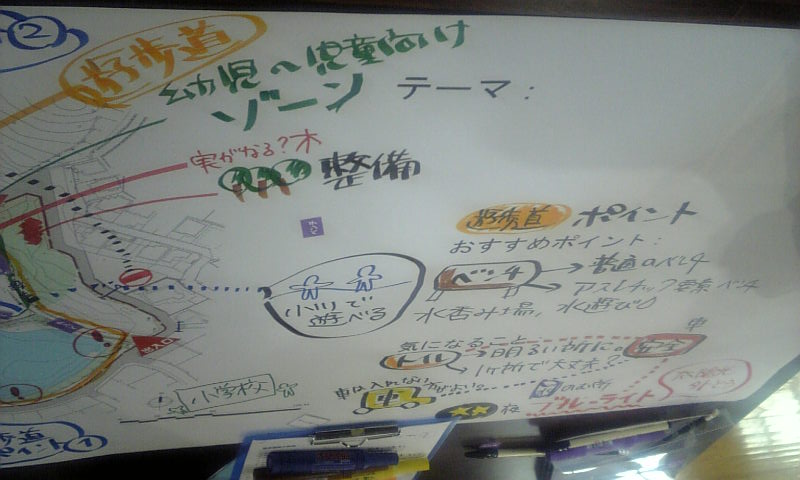 ②
遊歩道
幼児へ児童向け
ゾーン
テーマ:
実がなる?木
整備
遊歩道 ポイント
おすすめポイント:
ベンチ
普通のベンチ
アスレチック要素ベンチ
小川で
遊べる
水呑み場, 水遊び
気になること
トイレ
明るい所に。
安全
車
1ヶ所で大丈夫?
小学校
車は入れない
車
夜
ブルーライト
ポイント①